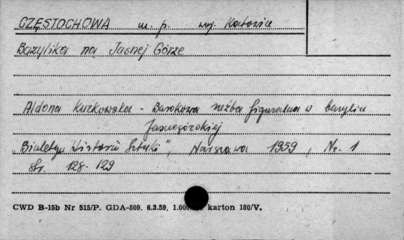 CZĘSTOCHOWA m. p. woj. Katowice
Bazylika na Jasnej Górze
Aldona Kurkowska - Barokowa rzeźba figuralna w bazylice
Jasnogórskiej
„Biuletyn Historii Sztuki", Warszawa 1959, Nr. 1
Str. 128-129
CWD B-15b Nr 515/P. GDA-809. 6.3.59. karton 180/V.